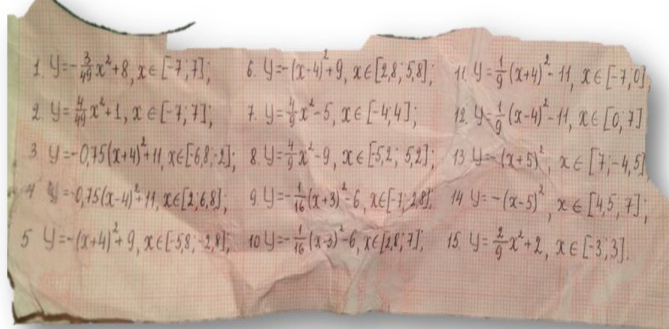 1. y=-3/49 x²+8, x∈[-7;7];
2. y=4/49 x²+1, x∈[-7;7];
3 y=-0,75(x+4)²+11, x∈[-6,8;-2];
4 y=-0,75(x-4)²+11, x∈[2;6,8];
5 y=-(x+4)²+9, x∈[-5,8;-2,8];
6. y=-(x-4)²+9, x∈[2,8;5,8];
7. y=4/9 x²-5, x∈[-4;4];
8. y=4/9 x²-9, x∈[-5,2;5,2];
9. y=-1/16(x+3)²-6, x∈[-7;-2,8];
10 y=-1/16(x-3)²-6, x∈[2,8;7];
11. y=1/9(x+4)²-11, x∈[-7,0]
12. y=1/9(x-4)²-11, x∈[0;7]
13 y=-(x+5)², x∈[7,-4,5]
14 y=-(x-5)², x∈[4,5,7];
15. y=2/9 x²+2, x∈[-3;3].